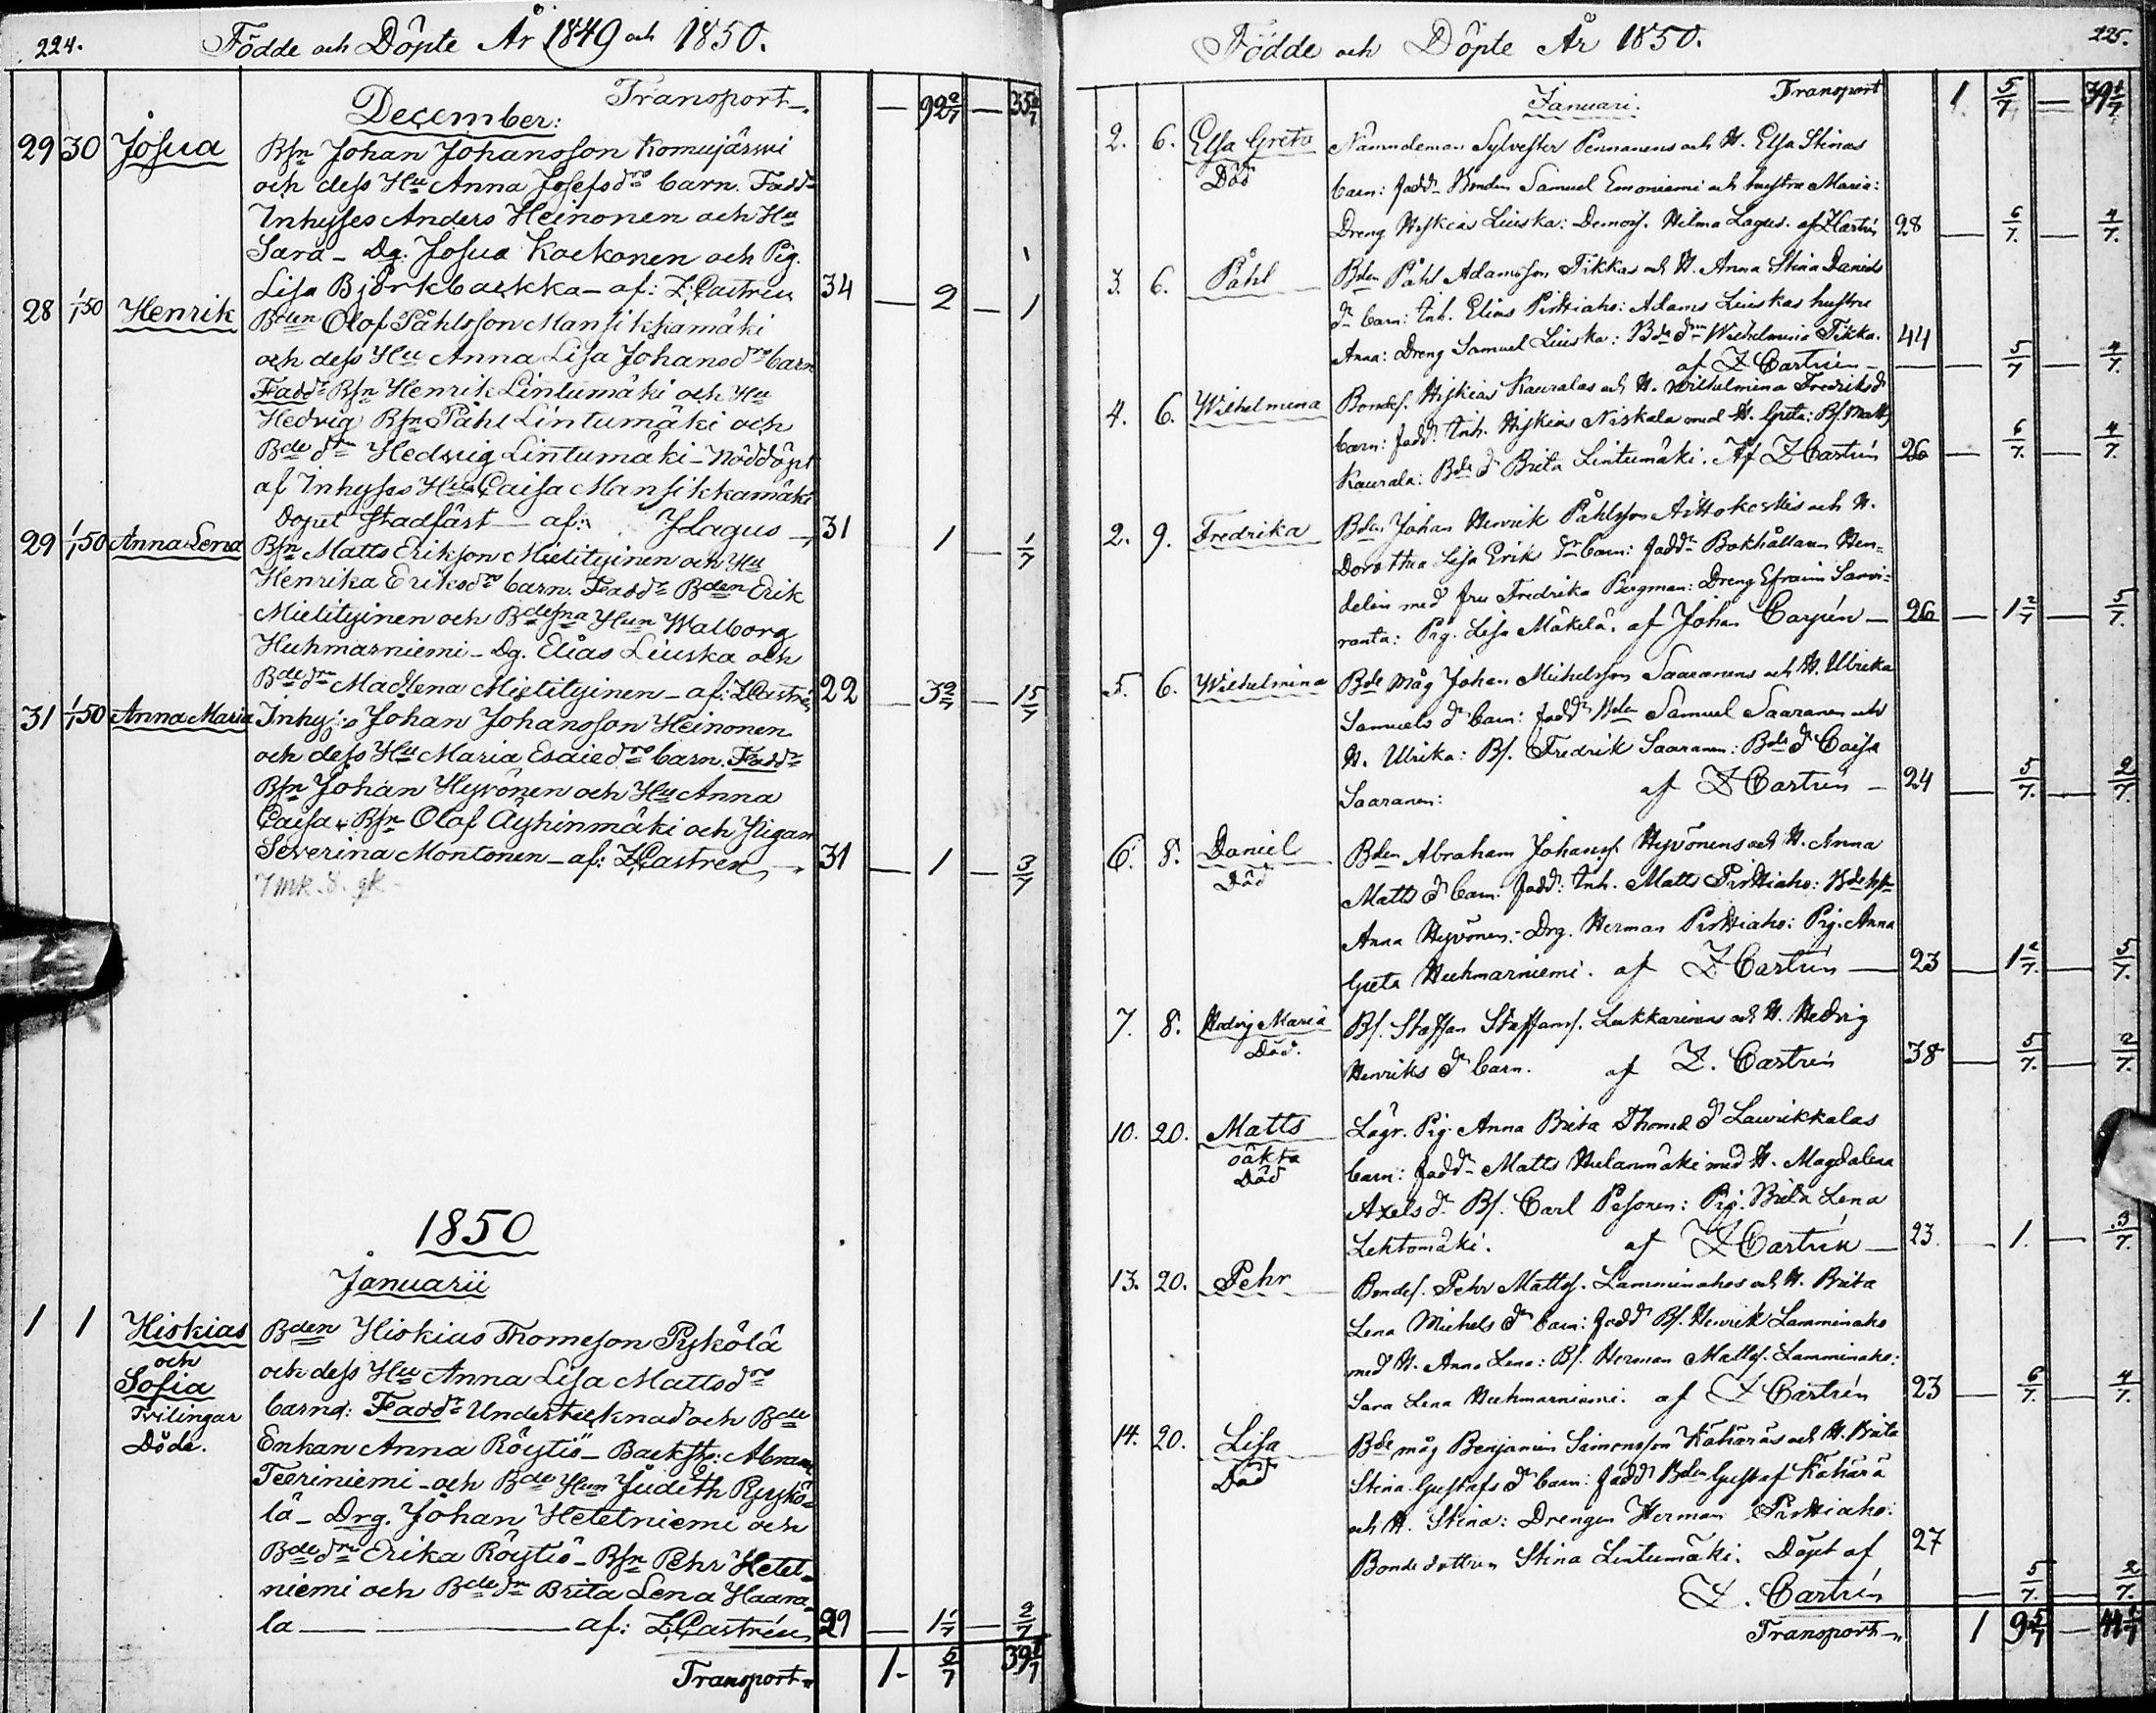 224.
Födde och Döpte År 1849 och 1850.
Transport
92 2/7 — 35 2/7
December:
29 30 Josua Bsn Johan Johansson Komujärwi
och dess Hu Anna Josefsdrs barn. Fadd:
Inhysses Anders Heinonen och Hu
Sara — Dg. Josua Kockonen och Pig.
Lisa Björkbackka — af: Z Castrén 34 — 2 — 1
28 1/1 50 Henrik Bden Olof Påhlsson Mansikkamäki
och dess Hu Anna Lisa Johansdrs barn
Fadd: Bsn Henrik Lintumäki och Hu
Hedvig Bsn Påhl Lintumäki och
Bde drn Hedvig Lintumäki — Nöddöpt
af Inhyses Hun Caisa Mansikkamäki
Dopet Stadfäst — af: JLagus 31 — 1 — 1/7
29 1/1 50 Anna Lena Bsn Matts Eriksson Mielityinen och Hu
Henrika Eriksdrs barn. Fadd: Bden Erik
Mielityinen och Bdesna Hun Walborg
Huhmarniemi — Dg. Elias Liuska och
Bde drn Madlena Mielityinen — af: Z Castrén 22 — 3 2/7 — 15/7
31 1/1 50 Anna Maria Inhy:s Johan Johansson Heinonen
och dess Hu Maria Esaiedrs barn. Fadd:
Bsn Johan Hyvönen och Hu Anna
Caisa — Bsn Olof Äyhinmäki och Pigan
Severina Montonen — af: Z Castrén 31 — 1 — 3/7
7 mk. 8. gk
1850
Januarii
1 1 Hiskias Bden Hiskias Thomeson Pyskölä
och
och dess Hu Anna Lisa Mattsdrs
Sofia
barnd: Fadd: Undertecknad och Bde
Tvilingar
Döde.
Enkan Anna Röytiö — Backsto: Abram
Teeriniemi — och Bde Hun Judith Pyskö-
lä — Drg. Johan Hetetniemi och
Bde drn Erika Röytiö — Bsn Pehr Hetet-
niemi och Bde drn Brita Lena Haara-
la — af: Z Castrén 29 — 1 1/7 — 2/7
Transport 1 — 5/7 39 1/7
Födde och Döpte År 1850.
225.
Transport 1 5/7 — 39 1/7
Januari.
2. 6. Elsa Greta Nämndeman Sylvester Pennanens och H. Elsa Stinas
Död
barn: fadd: Bonden Samuel Emoniemi och hustru Maria:
Dreng Hiskias Liuska: Demois. Hilma Lagus. af Z Castrén 28 — 6/7. — 4/7.
3. 6. Påhl Bden Påhl Adamsson Tikkas och H. Anna Stina Daniels
dr barn: Inh. Elias Pirttiaho: Adams Liuskas hustru
Anna: Dreng Samuel Liuska: Bde drn Wilhelmina Tikka. 44
af Z Castrén — 5/7 — 4/7.
4. 6. Wilhelmina Bondes. Hiskias Kauralas och H. Wilhelmina Fredriks dr
barn: fadd: Inh. Hiskias Niskala med H. Greta: Bs. Matts
Kaurala: Bde dr Brita Lintumäki. Af Z Castrén 26 — 6/7. — 4/7.
2. 9. Fredrika Bden Johan Henrik Påhlsson Aittokoskis och H.
Dorothea Lisa Erik dr barn: fadd: Bokhållaren Hen-
delin med fru Fredrika Bergman: Dreng Efraim Sarvi-
ranta: Pig. Lisa Mäkelä. af Johan Carpén — 26 — 1 2/7 — 5/7.
5. 6. Wilhelmina Bde måg Johan Michelsson Saaranens och H. Ulrika
Samuels dr barn: fadd: Bden Samuel Saaranen och
H. Ulrika: Bs. Fredrik Saaranen: Bde dr Caisa
Saaranen: af Z Castrén — 24 — 5/7. — 2/7.
6. 8. Daniel Bden Abraham Johanss. Hyvönens och H. Anna
Död
Matts dr barn: fadd: Inh. Matts Pirttiaho: Bde
Anna Hyvönen: Drg. Herman Pirttiaho: Pig. Anna
Greta Huhmarniemi. af Z Castrén — 23 — 1 2/7. — 5/7.
7. 8. Hedvig Maria Bs. Staffan Staffanss. Lukkarinens och H. Hedvig
Död.
Henriks dr barn. af Z. Castrén 38 — 5/7. — 2/7.
10. 20. Matts Lägr. Pig. Anna Brita Thomæ dr Laurikkalas
oäkta
Död
barn: fadd: Matts Hulanmäki med H. Magdalena
Axels dr Bs. Carl Pesonen: Pig. Brita Lena
Lehtomäki. af Z Castrén — 23. — 1. — 3/7.
13. 20. Pehr Bondes. Pehr Mattss. Lamminahos och H. Brita
Lena Michels dr barn: fadd: Bs. Henrik Lamminaho
med H. Anna Lena: Bs. Herman Mattss. Lamminaho:
Sara Lena Huhmarniemi. af Z Castrén 23 — 6/7. — 4/7.
14. 20. Lisa Bde måg Benjamin Simonsson Kähäräs och H. Brita
Död
Stina Gustafs dr barn: fadd: Bden Gustaf Kähärä
och H. Stina: Drengen Herman Pirttiaho:
Bonde dottren Stina Lintumäki. Döpt af 27
Z. Castrén — 5/7. — 2/7.
Transport 1 9 5/7 — 44 1/7